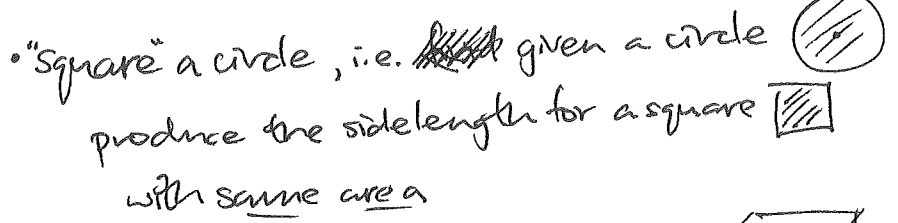 • "Square" a circle, i.e. given a circle
produce the sidelength for a square
with same area